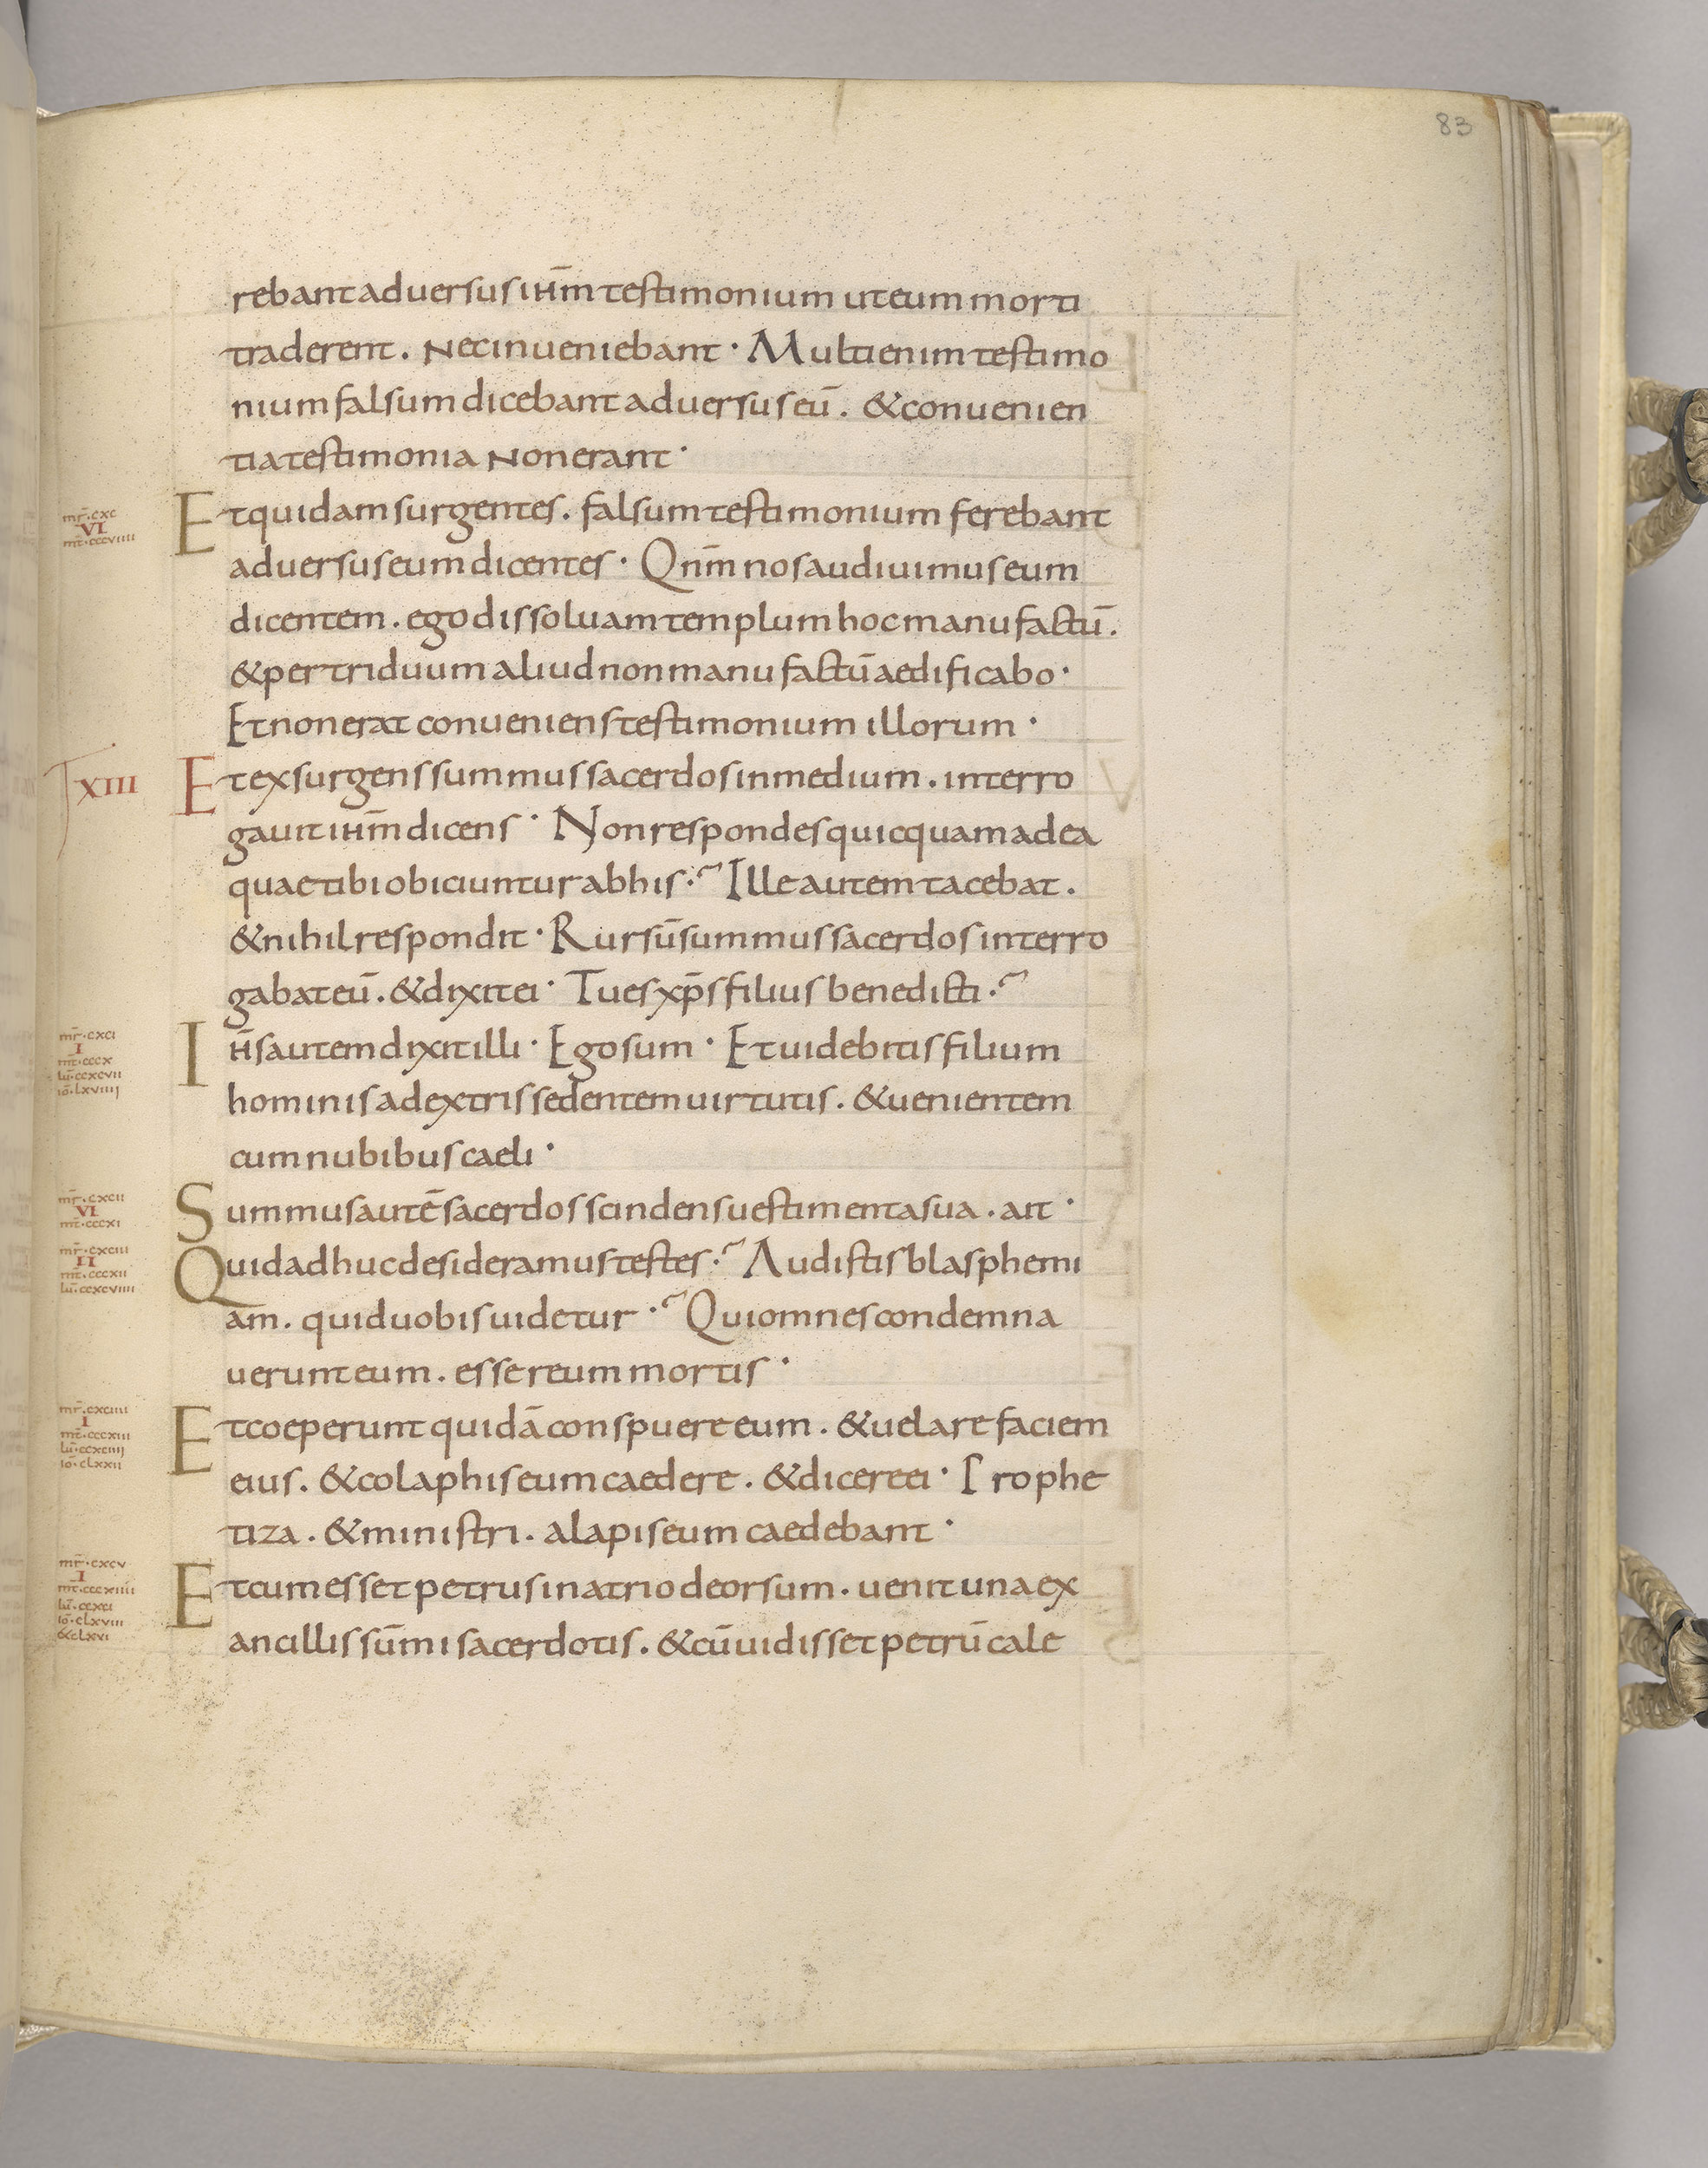 83
rebant adversus ih̅m testimonium ut eum morti
traderent. nec inveniebant · Multi enim testimo
nium falsum dicebant adversus eū. & convenien
tia testimonia non erant ·
mr̄·cxc
VI
mt̄·cccviiii
Et quidam surgentes. falsum testimonium ferebant
adversus eum dicentes · Qnm̄ nos audivimus eum
dicentem. ego dissolvam templum hoc manufactū.
& per triduum aliud non manu factū aedificabo ·
Et non erat conveniens testimonium illorum ·
XIII
Et exsurgens summus sacerdos in medium. interro
gavit ih̅m dicens · Non respondes quicquam ad ea
quae tibi obiciuntur ab his ·~ Ille autem tacebat.
& nihil respondit · Rursū summus sacerdos interro
gabat eū. & dixit ei · Tu es xp̄s filius benedicti ·~
mr̄·cxci
I
mt̄·cccx
lū·ccxcvii
iō·lxviiii
Ih̅s autem dixit illi · Ego sum · Et videbitis filium
hominis a dextris sedentem virtutis. & venientem
cum nubibus caeli ·
mr̄·cxcii
VI
mt̄·cccxi
Summus autē sacerdos scindens vestimenta sua. ait ·
mr̄·cxciii
II
mt̄·cccxii
lū·ccxcviiii
Quid adhuc desideramus testes ·~ Audistis blasphemi
am. quid vobis videtur ·~ Qui omnes condemna
verunt eum. esse reum mortis ·
mr̄·cxciiii
I
mt̄·cccxiii
lū·ccxciiij
iō·clxxii
Et coeperunt quidā conspuere eum. & velare faciem
eius. & colaphis eum caedere. & dicere ei · Prophe
tiza. & ministri. alapis eum caedebant ·
mr̄·cxcv
I
mt̄·cccxiiii
lū·ccxci
iō·clxviii
&clxvi
Et cum esset petrus in atrio deorsum. venit una ex
ancillis sūmi sacerdotis. & cū vidisset petrū cale